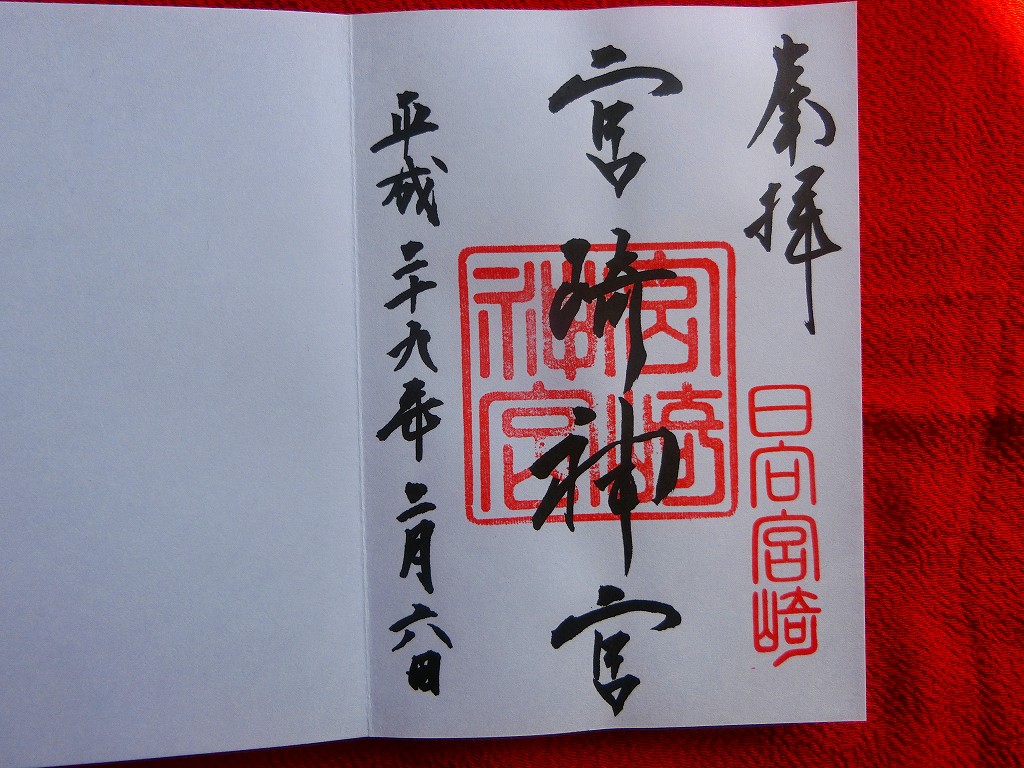 奉拝
日向宮崎
宮崎神宮
宮崎神宮
平成二十九年二月六日